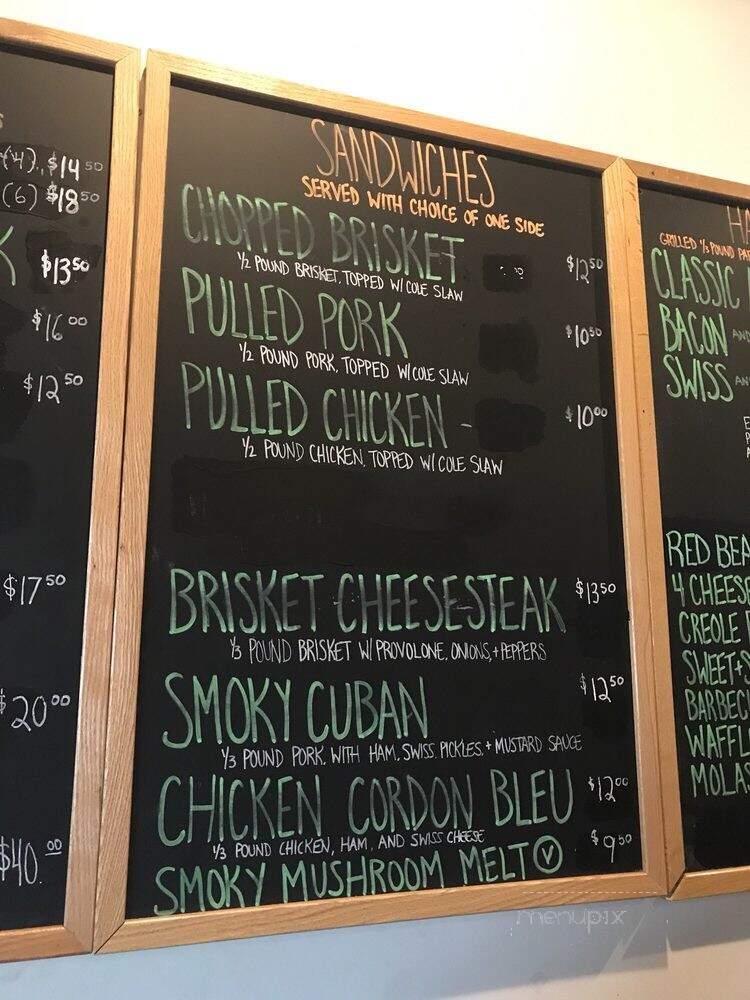 (4). $14 50
(6) $18 50
$13 50
$16 00
$12 50
$17 50
$20 00
$40. 00
SANDWICHES
SERVED WITH CHOICE OF ONE SIDE
CHOPPED BRISKET $12 50
1/2 POUND BRISKET, TOPPED W/ COLE SLAW
PULLED PORK $10 50
1/2 POUND PORK, TOPPED W/ COLE SLAW
PULLED CHICKEN - $10 00
1/2 POUND CHICKEN, TOPPED W/ COLE SLAW
BRISKET CHEESESTEAK $13 50
1/3 POUND BRISKET W/ PROVOLONE, ONIONS, + PEPPERS
SMOKY CUBAN $12 50
1/3 POUND PORK, WITH HAM, SWISS, PICKLES, + MUSTARD SAUCE
CHICKEN CORDON BLEU $12 00
1/3 POUND CHICKEN, HAM, AND SWISS CHEESE
SMOKY MUSHROOM MELT V $9 50
GRILLED 1/3 POUND
CLASSIC
BACON
SWISS
RED
4 CHEESE
CREOLE
menupix